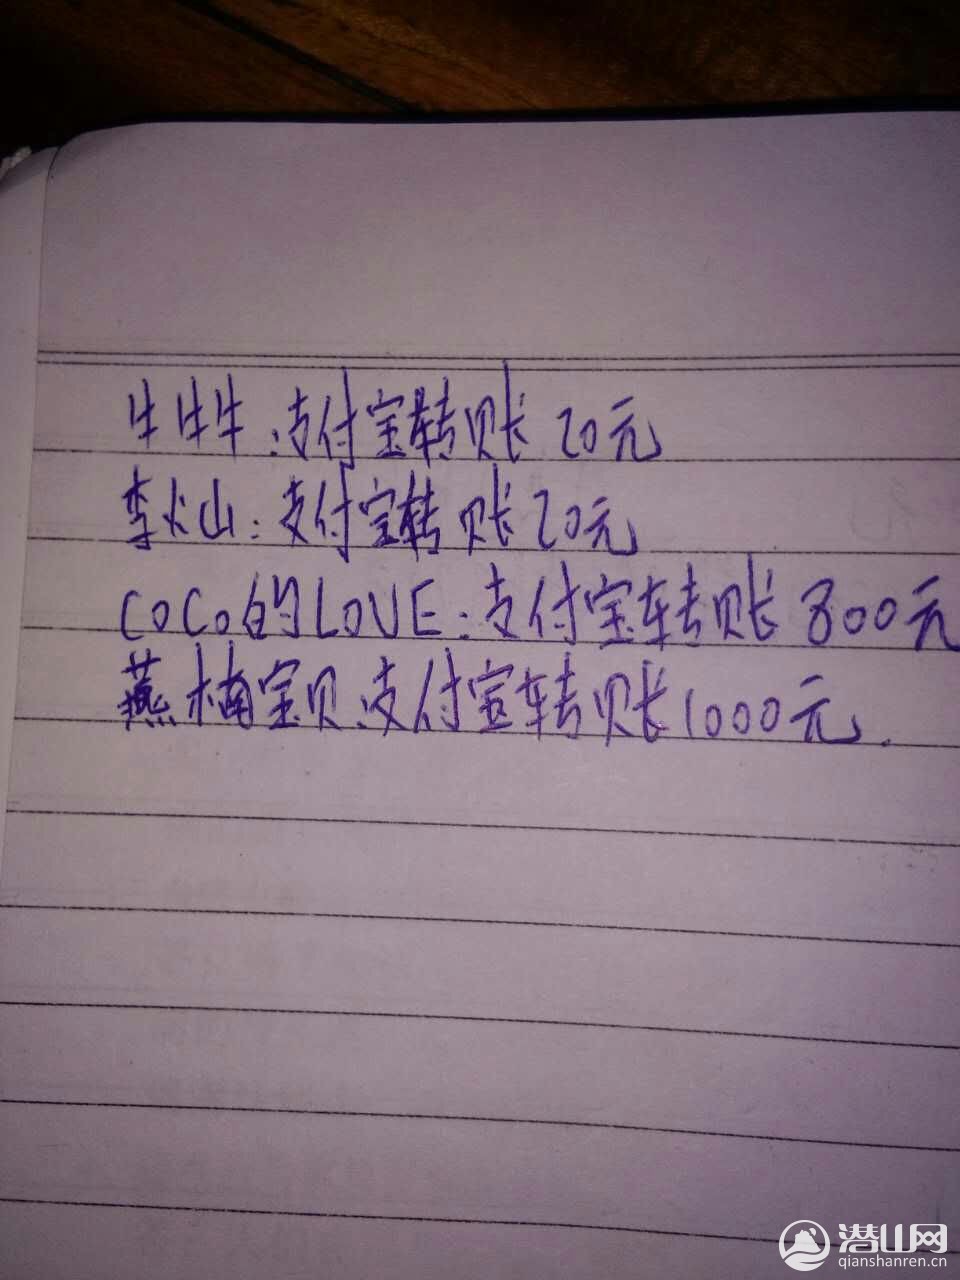 牛牛牛:支付宝转账20元
李火山:支付宝转账20元
COCO的LOVE:支付宝转账800元
燕楠宝贝:支付宝转账1000元.
潜山网
qianshanren.cn